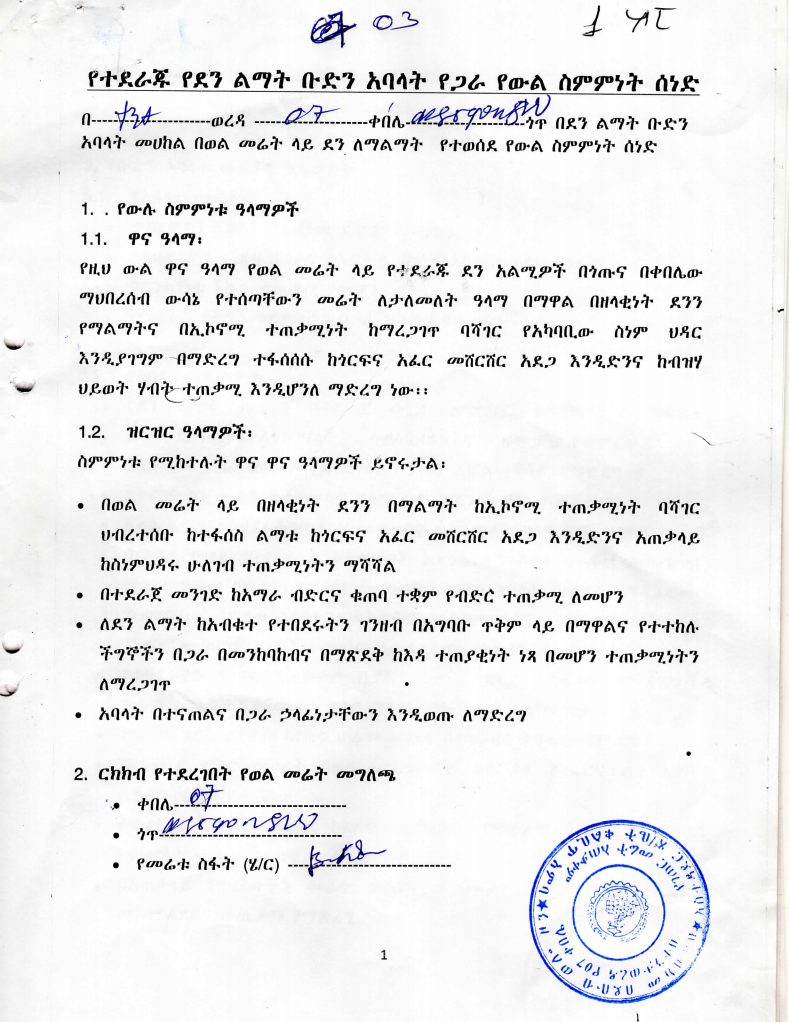 03
የተደራጁ የደን ልማት ቡድን አባላት የጋራ የውል ስምምነት ሰነድ
በ-----------------ወረዳ ----07----ቀበሌ-----------------ጎጥ በደን ልማት ቡድን
አባላት መሀከል በወል መሬት ላይ ደን ለማልማት የተወሰደ የውል ስምምነት ሰነድ
1. . የውሉ ስምምነቱ ዓላማዎች
1.1. ዋና ዓላማ፡
የዚህ ውል ዋና ዓላማ የወል መሬት ላይ የተደራጁ ደን አልሚዎች በጎጡና በቀበሌው
ማህበረሰብ ውሳኔ የተሰጣቸውን መሬት ለታለመለት ዓላማ በማዋል በዘላቂነት ደንን
የማልማትና በኢኮኖሚ ተጠቃሚነት ከማረጋገጥ ባሻገር የአካባቢው ስነም ህዳር
እንዲያገግም በማድረግ ተፋሰሰሱ ከጎርፍና አፈር መሸርሸር አደጋ እንዲድንና ከብዝሃ
ህይወት ሃብት ተጠቃሚ እንዲሆንለ ማድረግ ነው፡፡
1.2. ዝርዝር ዓላማዎች፡
ስምምነቱ የሚከተሉት ዋና ዋና ዓላማዎች ይኖሩታል፡
• በወል መሬት ላይ በዘላቂነት ደንን በማልማት ከኢኮኖሚ ተጠቃሚነት ባሻገር
ህብረተሰቡ ከተፋሰስ ልማቱ ከጎርፍና አፈር መሸርሸር አደጋ እንዲድንና አጠቃላይ
ከስነምህዳሩ ሁለገብ ተጠቃሚነትን ማሻሻል
• በተደራጀ መንገድ ከአማራ ብድርና ቁጠባ ተቋም የብድሮ ተጠቃሚ ለመሆን
• ለደን ልማት ከአብቁተ የተበደሩትን ገንዘብ በአግባቡ ጥቅም ላይ በማዋልና የተተከሉ
ችግኞችን በጋራ በመንከባከብና በማጽደቅ ከእዳ ተጠያቂነት ነጻ በመሆን ተጠቃሚነትን
ለማረጋገጥ
• አባላት በተናጠልና በጋራ ኃላፊነታቸውን እንዲወጡ ለማድረግ
2. ርክክብ የተደረገበት የወል መሬት መግለጫ
• ቀበሌ--07-------------------------
• ጎጥ------------------------------
• የመሬቱ ስፋት (ሄ/ር) ---------------------------
1